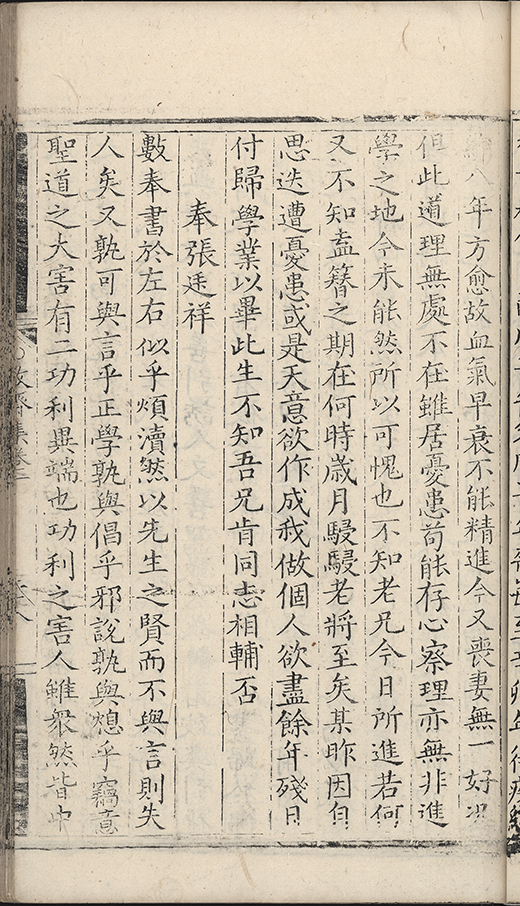 八年方愈故血氣早衰不能精進今又喪妻無一好况
但此道理無處不在雖居憂患苟能存心察理亦無非進
學之地今未能然所以可愧也不知老兄今日所進若何
又不知盍簪之期在何時歲月駸駸老將至矣某昨因自
思迭遭憂患或是天意欲作成我做個人欲盡餘年殘日
付歸學業以畢此生不知吾兄肯同志相輔否
奉張廷祥
數奉書於左右似乎煩瀆然以先生之賢而不與言則失
人矣又孰可與言乎正學孰與倡乎邪說孰與熄乎竊意
聖道之大害有二功利異端也功利之害人雖衆然皆中
敬齋集卷